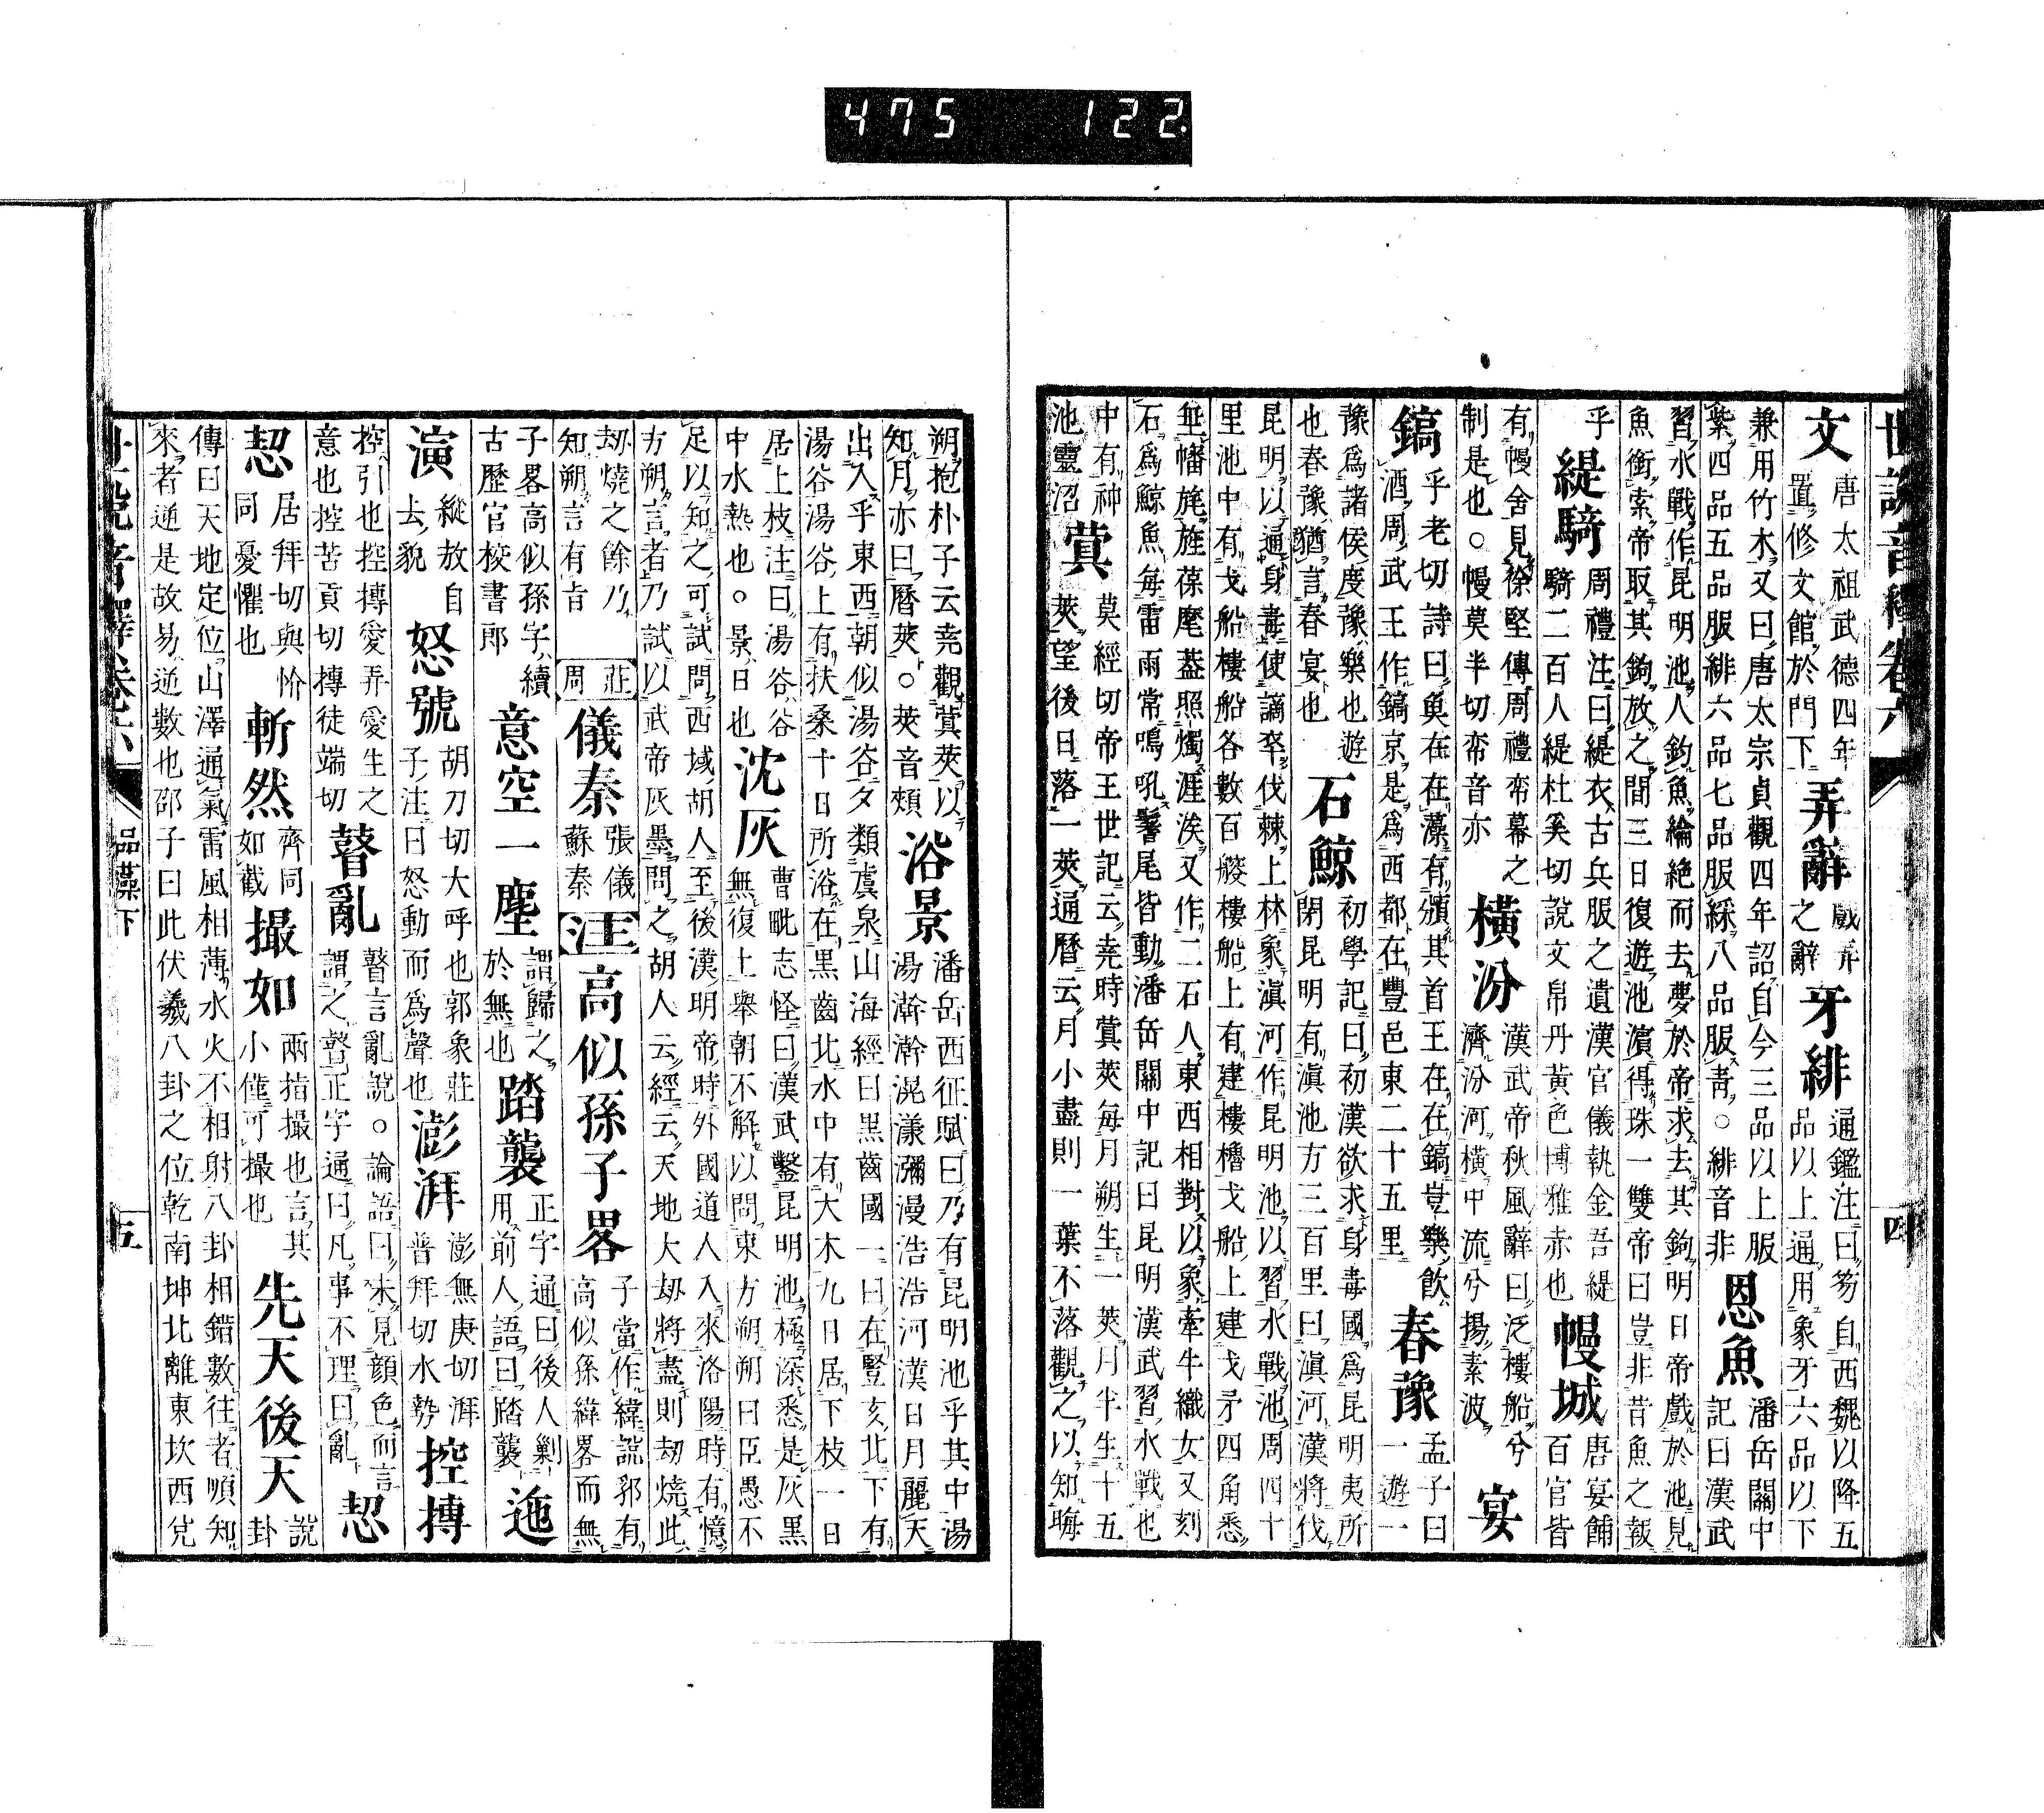 475 122.
世說音釋卷六
四
文 唐太祖武德四年
置修文館於門下 弄辭 戲弄
之辭 牙緋 通鑑注曰笏自西魏以降五
品以上通用象牙六品以下
兼用竹木又曰唐太宗貞觀四年詔自今三品以上服
紫四品五品服緋六品七品服綵八品服青○緋音非 恩魚 潘岳關中
記曰漢武
習水戰作昆明池人釣魚綸絕而去夢於帝求去其鉤明日帝戲於池見
魚銜索帝取其鉤放之間三日復遊池濱得珠一雙帝曰豈非昔魚之報
乎 緹騎 周禮注曰緹衣古兵服之遺漢官儀執金吾緹
騎二百人緹杜奚切說文帛丹黃色博雅赤也 幔城 唐宴餔
百官皆
有幔舍見徐堅傳周禮帟幕之
制是也○幔莫半切帟音亦 橫汾 漢武帝秋風辭曰泛樓船兮
濟汾河橫中流兮揚素波 宴
鎬 乎老切詩曰魚在在藻有頒其首王在在鎬豈樂飲
酒周武王作鎬京是爲西都在豐邑東二十五里 春豫 孟子曰
一遊一
豫爲諸侯度豫樂也遊
也春豫猶言春宴也 石鯨 初學記曰初漢欲求身毒國爲昆明夷所
閉昆明有滇池方三百里曰滇河漢將伐
昆明以通身毒使謫卒伐棘上林象滇河作昆明池以習水戰池周四十
里池中有戈船樓船各數百艘樓船上有建樓櫓戈船上建戈矛四角悉
垂幡旄旌葆麾葢照燭涯涘又作二石人東西相對以象牽牛織女又刻
石爲鯨魚每雷雨常鳴吼鬐尾皆動潘岳關中記曰昆明漢武習水戰也
中有神
池靈沼 蓂 莫經切帝王世記云堯時蓂莢每月朔生一莢月半生十五
莢望後日落一莢通曆云月小盡則一葉不落觀之以知晦
朔抱朴子云堯觀蓂莢以
知月亦曰曆莢○莢音頰 浴景 潘岳西征賦曰乃有昆明池乎其中湯
湯澣澣滉瀁瀰漫浩浩河漢日月麗天
出入乎東西朝似湯谷夕類虞泉山海經曰黑齒國一曰在豎亥北下有
湯谷湯谷上有扶桑十日所浴在黑齒北水中有大木九日居下枝一日
居上枝注曰湯谷谷
中水熱也○景日也 沈灰 曹毗志怪曰漢武鑿昆明池極深悉是灰黑
無復土舉朝不解以問東方朔朔曰臣愚不
足以知之可試問西域胡人至後漢明帝時外國道人入來洛陽時有憶
方朔言者乃試以武帝灰墨問之胡人云經云天地大劫將盡則劫燒此
劫燒之餘乃
知朔言有旨 莊周 儀秦 張儀
蘇秦 汪 高似孫子畧 子當作緯說郛有
高似孫緯畧而無
子畧高似孫字續
古歷官校書郎 意空一塵 謂歸之
於無也 踏襲 正字通曰後人剿
用前人語曰踏襲 迤
演 縱放自
去貌 怒號 胡刀切大呼也郭象莊
子注曰怒動而爲聲也 澎湃 澎無庚切湃
普拜切水勢 控摶
控引也控摶愛弄愛生之
意也控苦貢切摶徒端切 瞽亂 瞽言亂說○論語曰未見顏色而言
謂之瞽正字通曰凡事不理曰亂 恝
恝 居拜切與忦
同憂懼也 斬然 齊同
如截 撮如 兩指撮也言其
小僅可撮也 先天後天 說
卦
傳曰天地定位山澤通氣雷風相薄水火不相射八卦相錯數往者順知
來者逆是故易逆數也邵子曰此伏羲八卦之位乾南坤北離東坎西兌
世說音釋卷六
品藻下
五